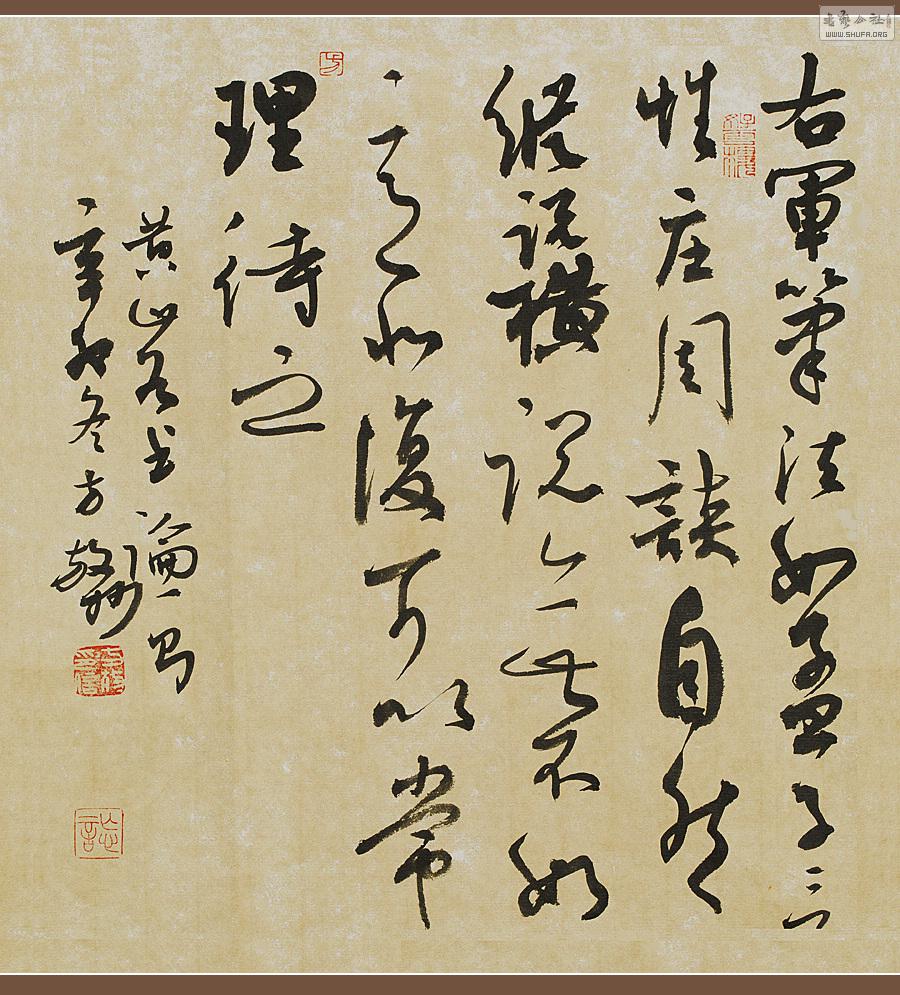 右軍筆法如孟子言
性庄周談自然
縱説橫説無不如
意非復可以常
理待之
黄山谷书論一
辛卯冬方
书艺公社
WWW.SHUFA.ORG